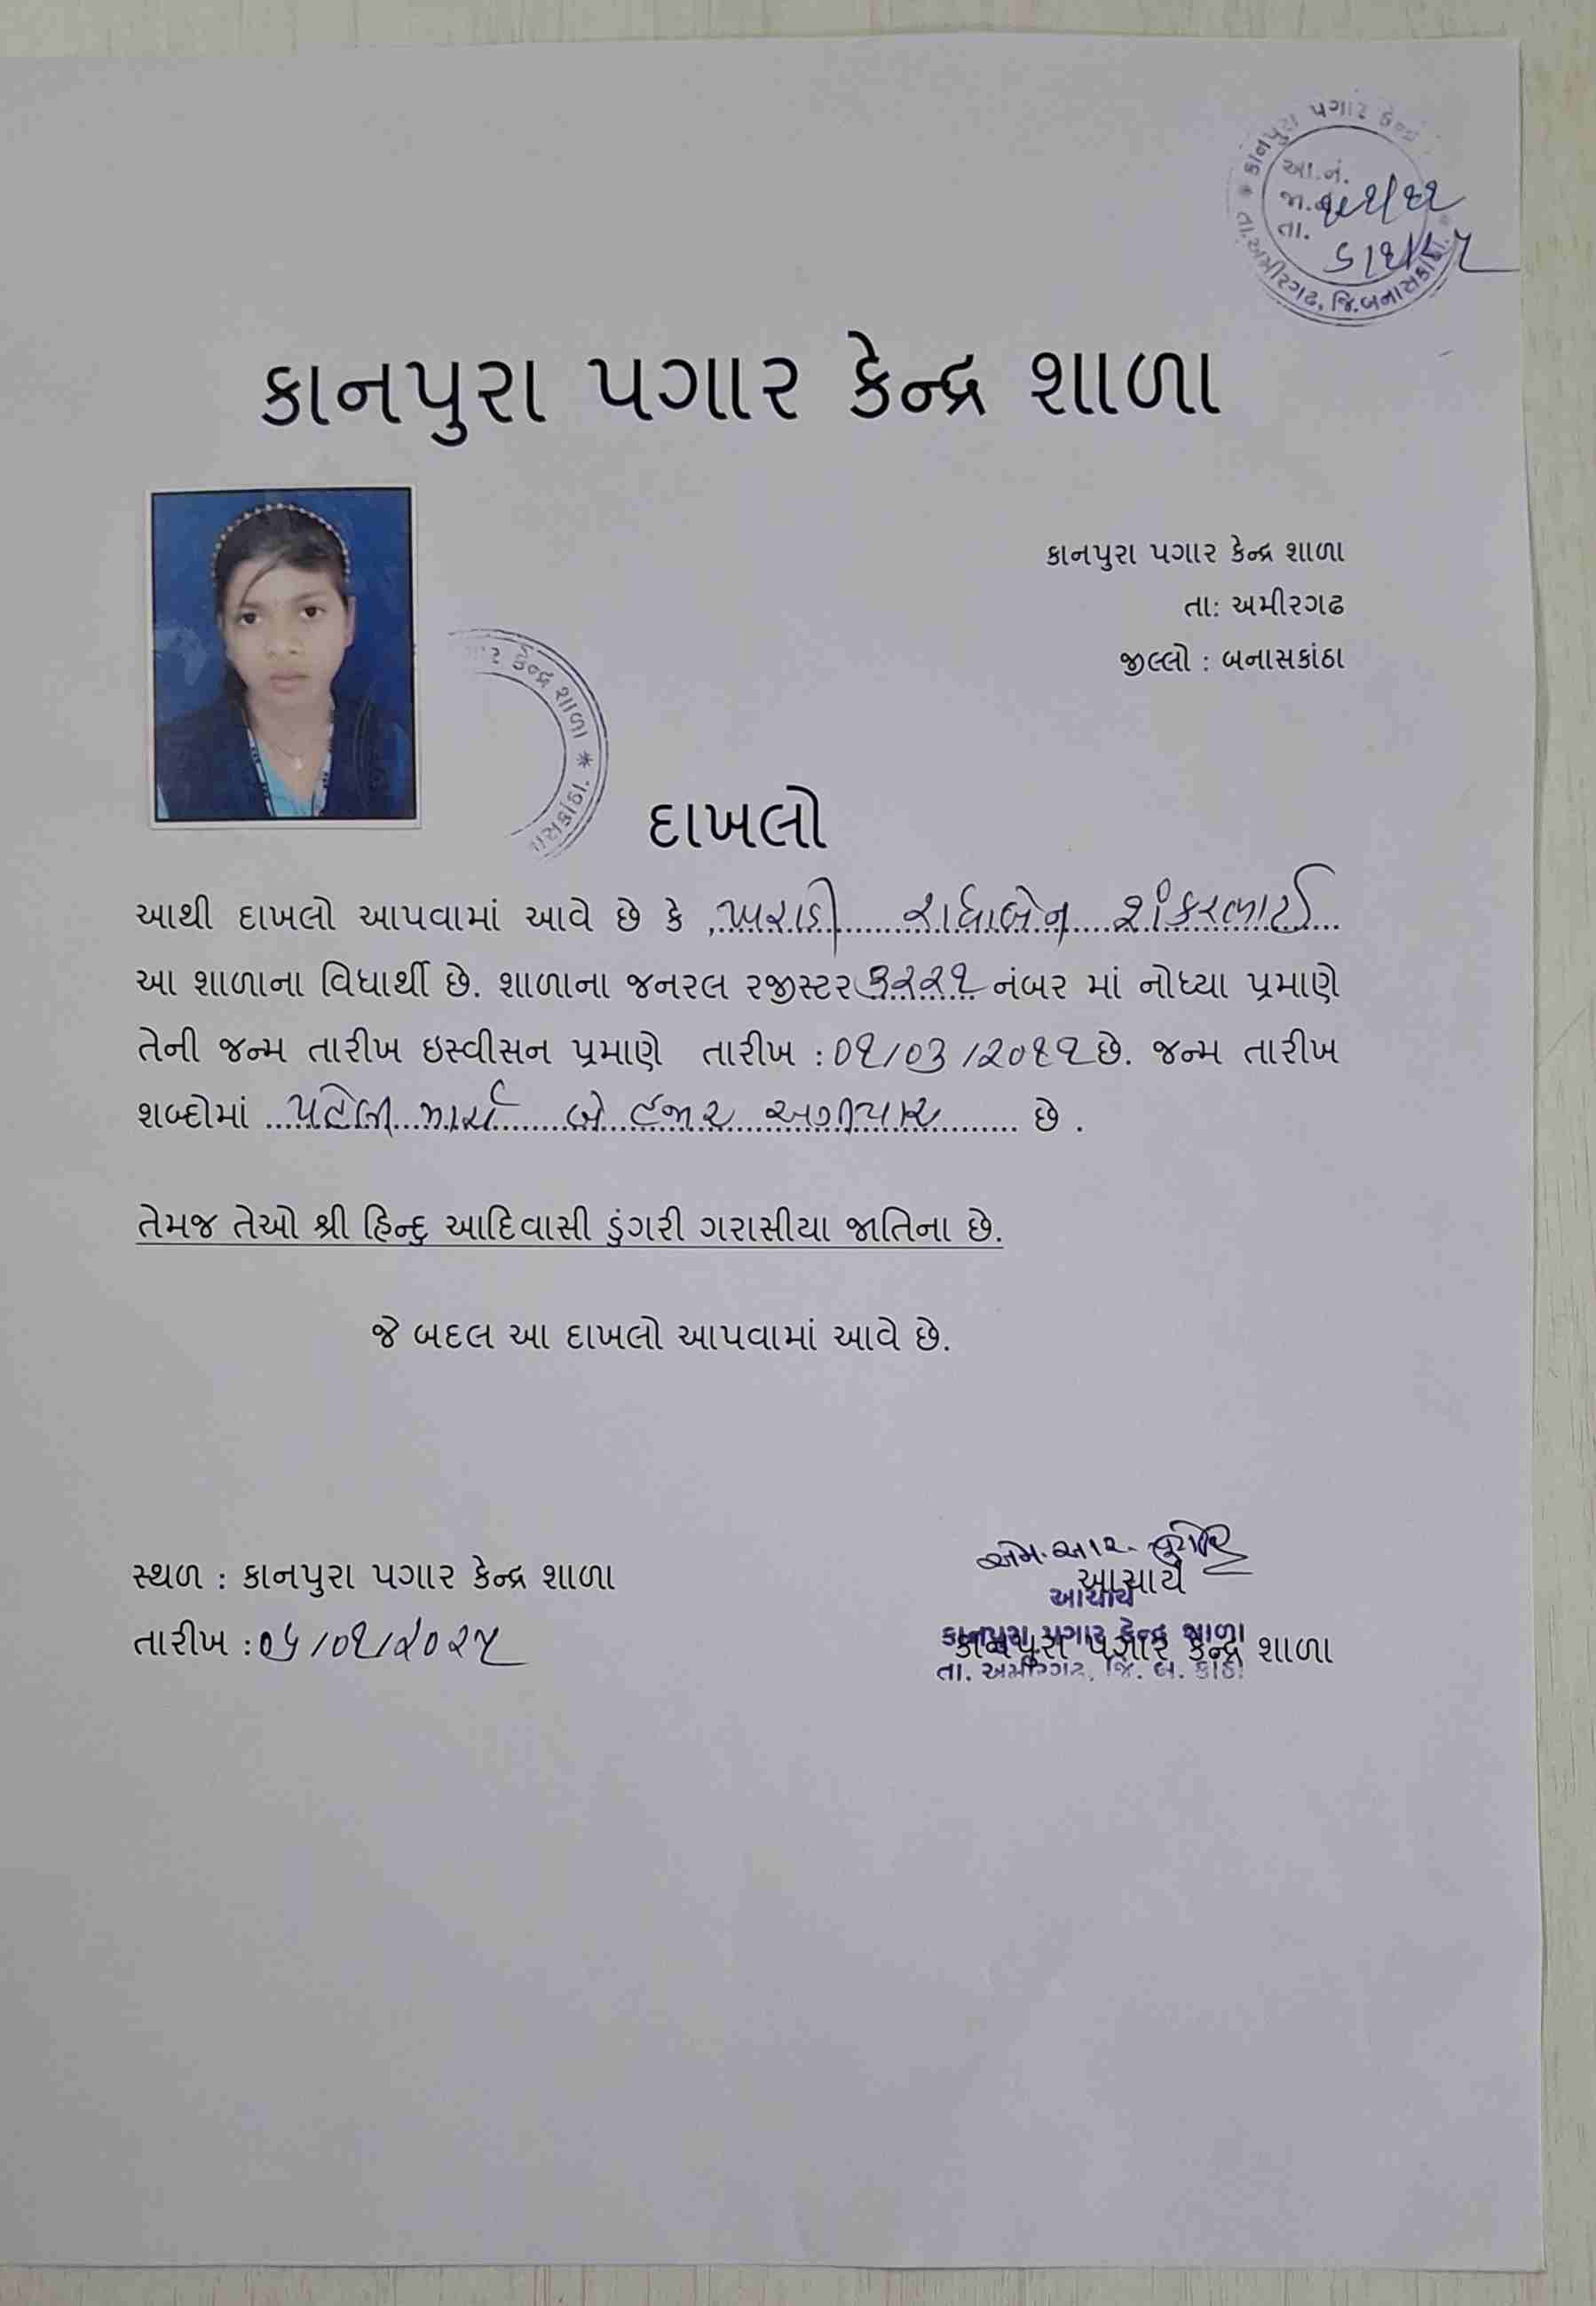 કાનપુરા પગાર કેન્દ્ર
આ.નં.
જા.નં.
તા.
તા.અમીરગઢ, જિ.બનાસકાંઠા.
કાનપુરા પગાર કેન્દ્ર શાળા
કાનપુરા પગાર કેન્દ્ર શાળા
તા: અમીરગઢ
જીલ્લો : બનાસકાંઠા
કેન્દ્ર શાળા
દાખલો
આથી દાખલો આપવામાં આવે છે કે ખરાડી રાધાબેન શંકરભાઈ
આ શાળાના વિધાર્થી છે. શાળાના જનરલ રજીસ્ટર ૩૨૨૧ નંબર માં નોધ્યા પ્રમાણે
તેની જન્મ તારીખ ઇસ્વીસન પ્રમાણે તારીખ : ૦૧/૦૩/૨૦૧૧ છે. જન્મ તારીખ
શબ્દોમાં પહેલી માર્ચ બે હજાર અગીયાર છે .
તેમજ તેઓ શ્રી હિન્દુ આદિવાસી ડુંગરી ગરાસીયા જાતિના છે.
જે બદલ આ દાખલો આપવામાં આવે છે.
એમ.આર.
સ્થળ : કાનપુરા પગાર કેન્દ્ર શાળા
આચાર્ય
આચાર્ય
તારીખ : ૦૬/૦૧/૨૦૨૫
કાનપુરા પગાર કેન્દ્ર શાળા
કાનપુરા પગાર કેન્દ્ર શાળા
તા. અમીરગઢ, જિ. બ. કાંઠા